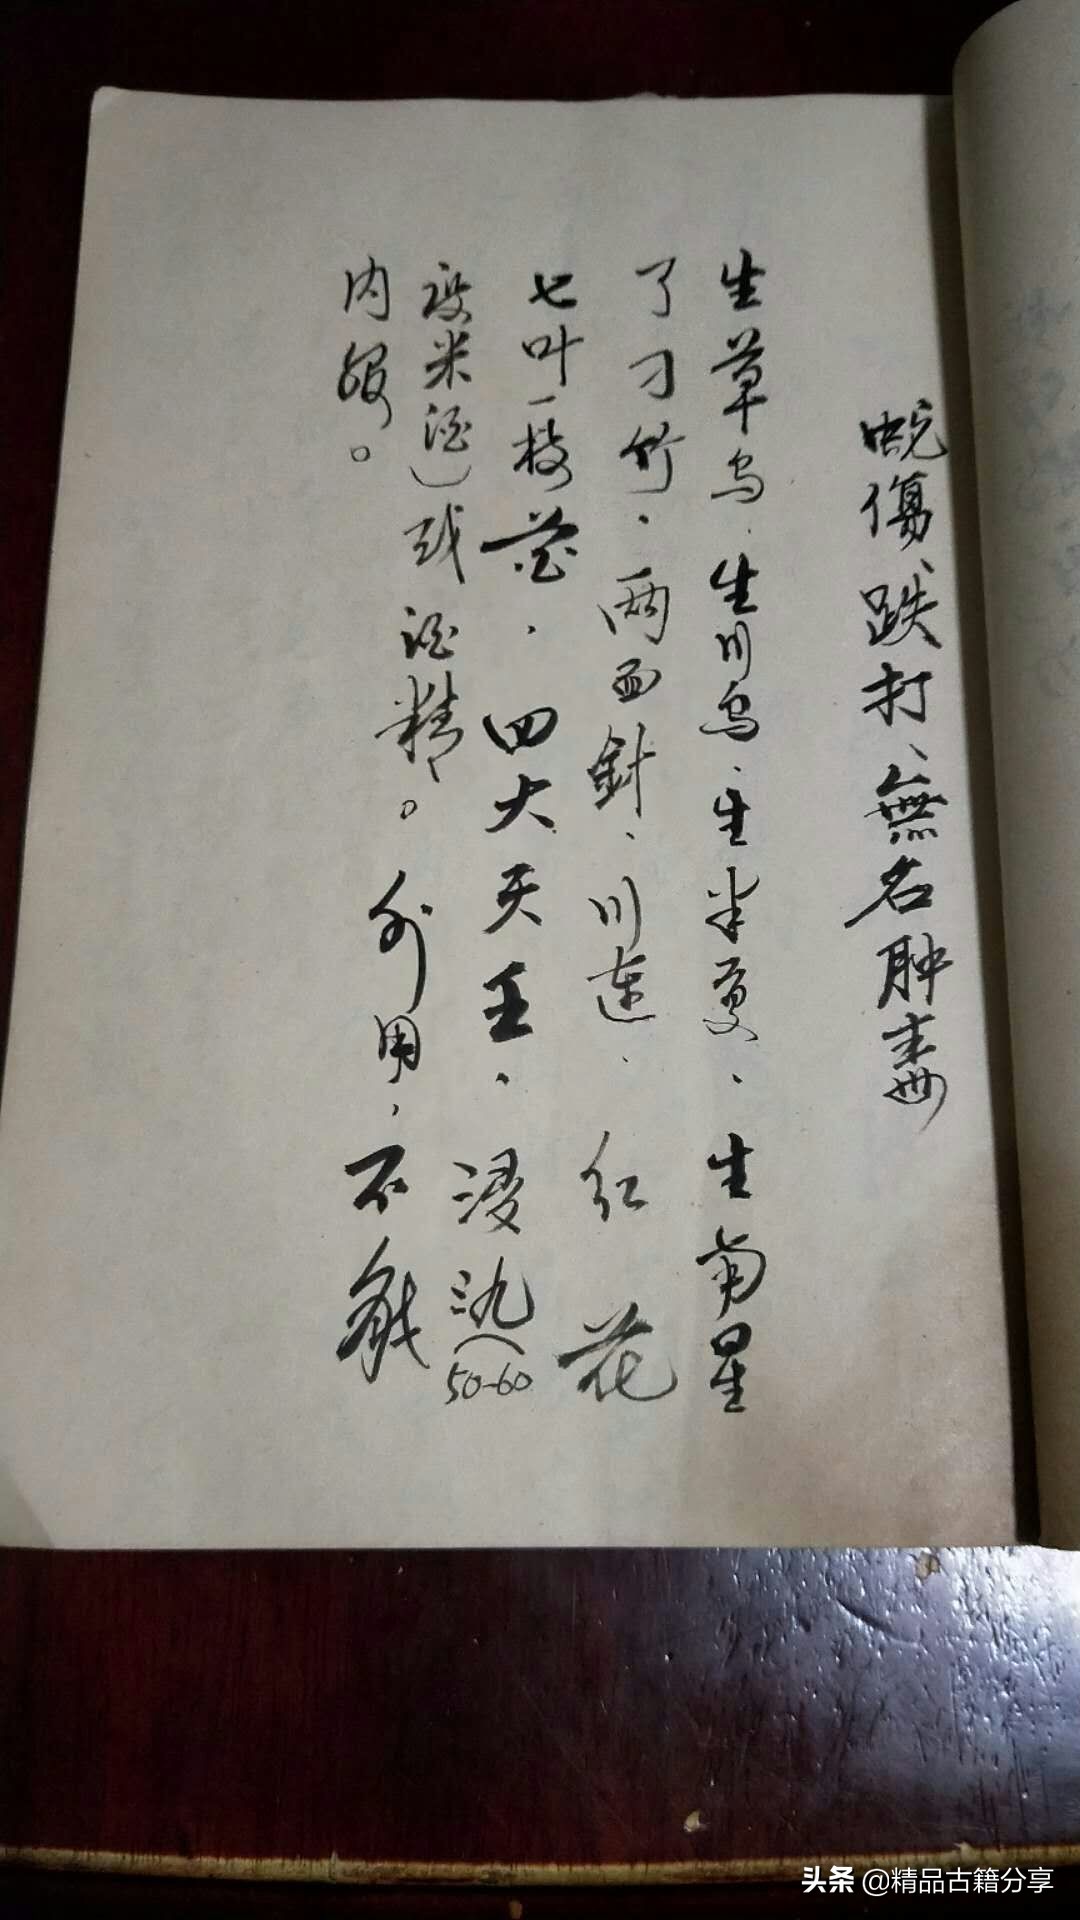 蛇傷、跌打、無名肿毒
生草乌、生川乌、生半夏、生南星
了刁竹、两面針、川連、红花
七叶一枝花、四大天王、浸(50-60
度米酒)或酒精。外用，不能
内服。
头条 @精品古籍分享